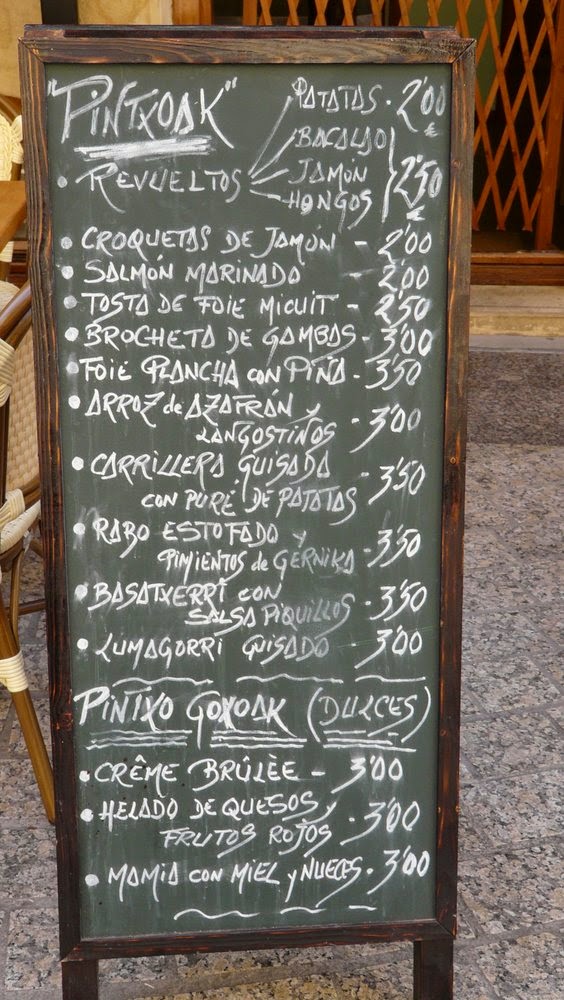 "PINTXOAK"
PATATAS. 2'00 €
BACALAO
• REVUELTOS JAMÓN 2'50 €
HONGOS
• CROQUETAS DE JAMÓN - 2'00
• SALMÓN MARINADO - 2'00
• TOSTA DE FOIE MICUIT - 2'50
• BROCHETA DE GAMBAS - 3'00
• FOIE PLANCHA CON PIÑA - 3'50
• ARROZ de AZAFRÁN y
LANGOSTINOS - 3'00
• CARRILLERA GUISADA
CON PURÉ DE PATATAS - 3'50
• RABO ESTOFADO y
PIMIENTOS de GERNIKA - 3'50
• BASATXERRI CON
SALSA PIQUILLOS • 3'50
• LUMAGORRI GUISADO • 3'00
PINTXO GOXOAK (DULCES)
• CRÊME BRÛLÈE - 3'00
• HELADO DE QUESOS y
FRUTOS ROJOS • 3'00
• MAMIA CON MIEL y NUECES • 3'00